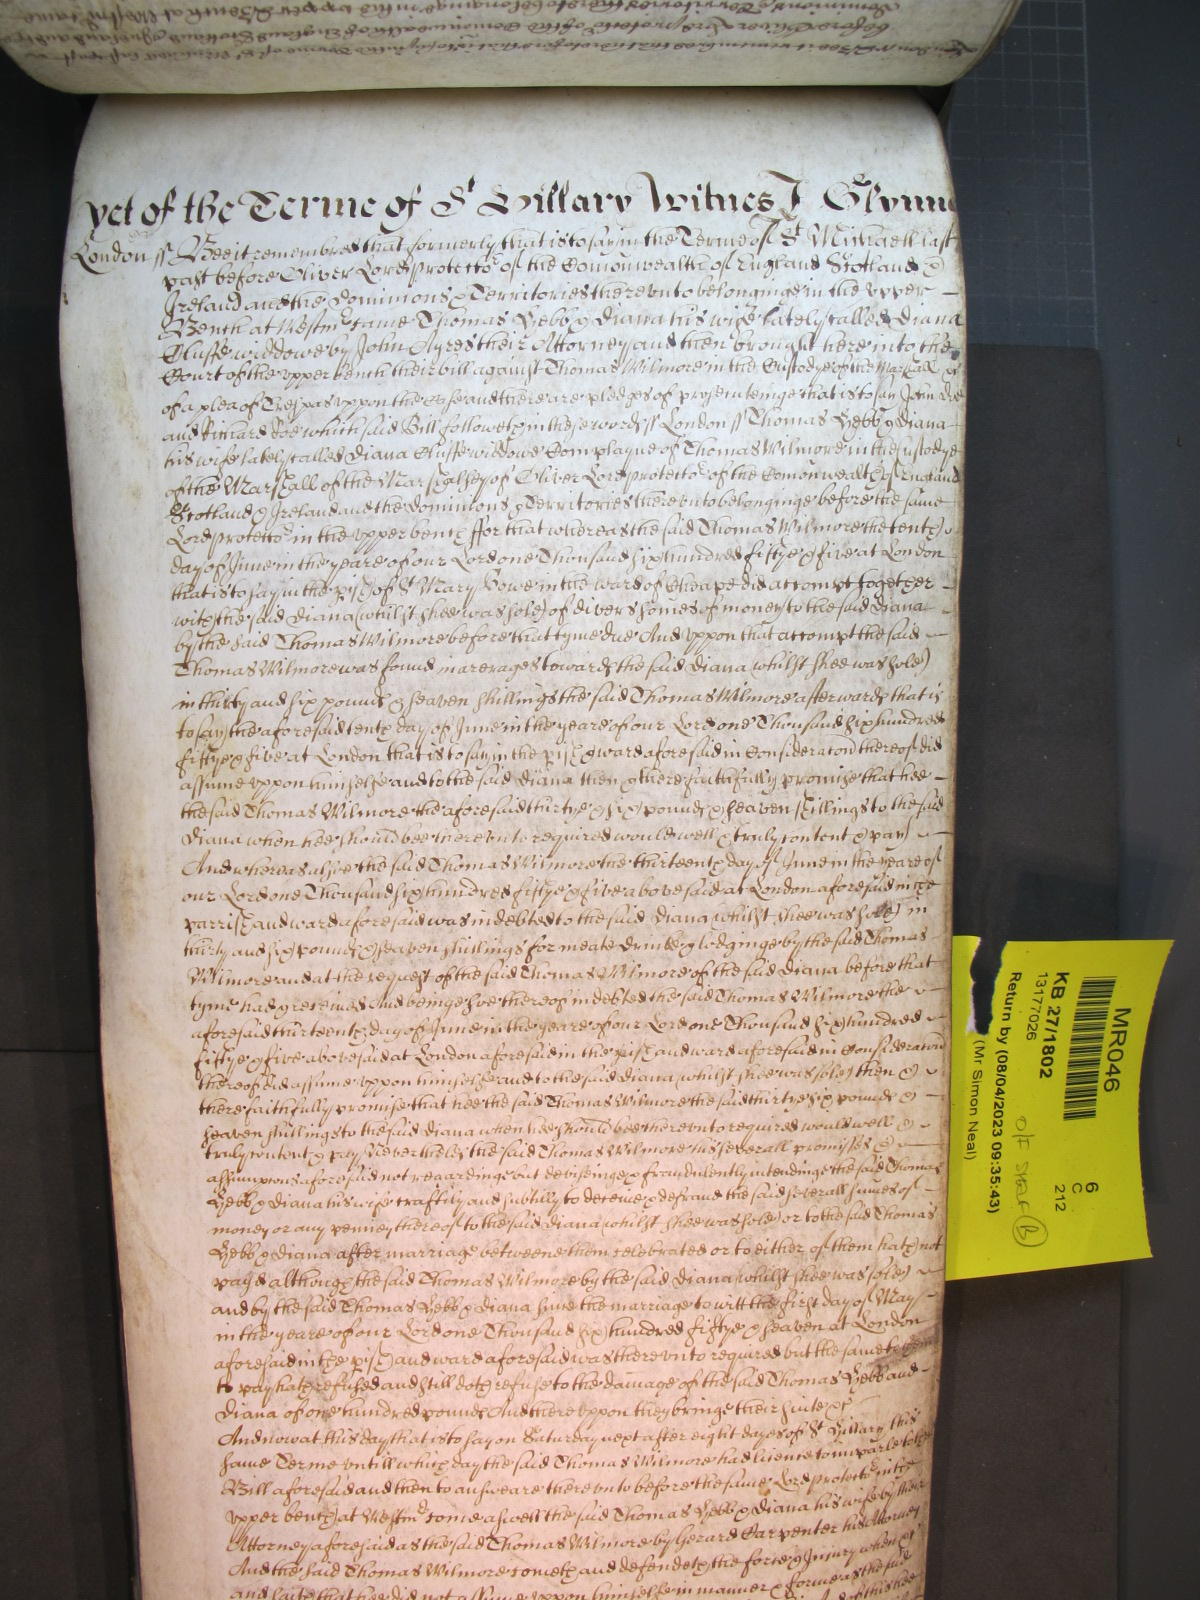 yet of the Terme of St Hillary Witnes J Glynne
London ss Bee it remembred that formerly that is to say in the Terme of St Michaell last
past before Oliver Lord Protector of the Comonwealth of England Scotland &
Ireland and the Dominions & Territories thereunto belonginge in the upper
Bench at Westmr came Thomas Hebb & Diana his wife lately called Diana
Cluffe widdowe by John Ayres their Attorney and then brought here into the
Court of the upper bench their bill against Thomas Wilmore in the Custodye of the Marshall &c
of a plea of Trespas uppon the Case and there are pledges of prosecuteinge that is to say John Doe
and Richard Roe which said Bill followeth in these words ss London ss Thomas Hebb & Diana
his wife lately called Diana Cluffe widdowe Complayne of Thomas Wilmore in the custodye
of the Marshall of the Marshalsey of Oliver Lord protector of the Comonwealth of England
Scotland & Ireland and the Dominions & Territories thereunto belonginge before the same
Lord protector in the upper bench ffor that whereas the said Thomas Wilmore the tenth
day of June in the yeare of our Lord one Thousand six hundred fiftye & five at London
that is to say in the pish of St Mary Bowe in the ward of Cheape did accompt together
with the said Diana (whilst shee was sole) of divers somes of money to the said Diana
by the said Thomas Wilmore before that tyme due And uppon that accompt the said
Thomas Wilmore was found in arerages towards the said Diana (whilst shee was sole)
in thirty and six pounds & seaven shillings the said Thomas Wilmore afterwards that is
to say the aforesaid tenth day of June in the yeare of our Lord one Thousand six hundred
fiftye & five at London that is to say in the pish & ward aforesaid in Consideraton thereof did
assume uppon himselfe and to the said Diana then & there faithfully promise that hee
the said Thomas Wilmore the aforesaid thirtye & six pounds & seaven shillings to the said
Diana when hee should bee thereunto required would well & truly content & pay
And whereas alsoe the said Thomas Wilmore the thirteenth day of June in the yeare of
our Lord one Thousand six hundred fiftye & five abovesaid at London aforesaid in the
parrish and ward aforesaid was indebted to the said Diana (whilst shee was sole) in
thirty and six pounds & seaven shillings for meate drinke & lodginge by the said Thomas
Wilmore and at the request of the said Thomas Wilmore of the said Diana before that
tyme had & received And beinge soe thereof indebted the said Thomas Wilmore the
aforesaid thirteenth day of June in the yeare of our Lord one Thousand six hundred
fiftye & five abovesaid at London aforesaid in the pish and ward aforesaid in Consideraton
thereof did assume uppon himselfe and to the said Diana (whilst shee was sole) then &
there faithfully promise that hee the said Thomas Wilmore the said thirtye six pounds &
seaven shillings to the said Diana when hee should bee thereunto required would well &
truly content & pay Neverthelesse the said Thomas Wilmore his severall promisses &
assumptons aforesaid not regardinge but deviseinge & fraudulently intendinge the said Thomas
Hebb & Diana his wife craftily and subtilly to deceive & defraud the said severall sumes of
money or any penney thereof to the said Diana (whilst shee was sole) or to the said Thomas
Hebb & Diana after marriage betweene them celebrated or to either of them hath not
payd although the said Thomas Wilmore by the said Diana (whilst shee was sole)
and by the said Thomas Hebb & Diana since the marriage to witt the first day of May
in the yeare of our Lord one Thousand six hundred fiftye & seaven at London
aforesaid in the pish and ward aforesaid was thereunto required but the same to them
to pay hath refused and still doth refuse to the damage of the said Thomas Hebb and
Diana of one hundred pounds And thereuppon they bringe their suite &c
And now at this day that is to say on Saturday next after eight dayes of St Hillary this
same Terme untill which day the said Thomas Wilmore had licence to imparle to the
Bill aforesaid and then to answeare thereunto before the same Lord protector in the
upper bench at Westmr come aswell the said Thomas Hebb & Diana his wife by their
Attorney aforesaid as the said Thomas Wilmore by Gerard Carpenter his Attorney
And the said Thomas Wilmore cometh and defendeth the force & Injury when &c
and saith that hee did not assume uppon himselfe in manner & forme as the said
MR046
KB 27/1802
13177026
Return by (08/04/2023 09:35:43)
(Mr Simon Neal)
6
C
212